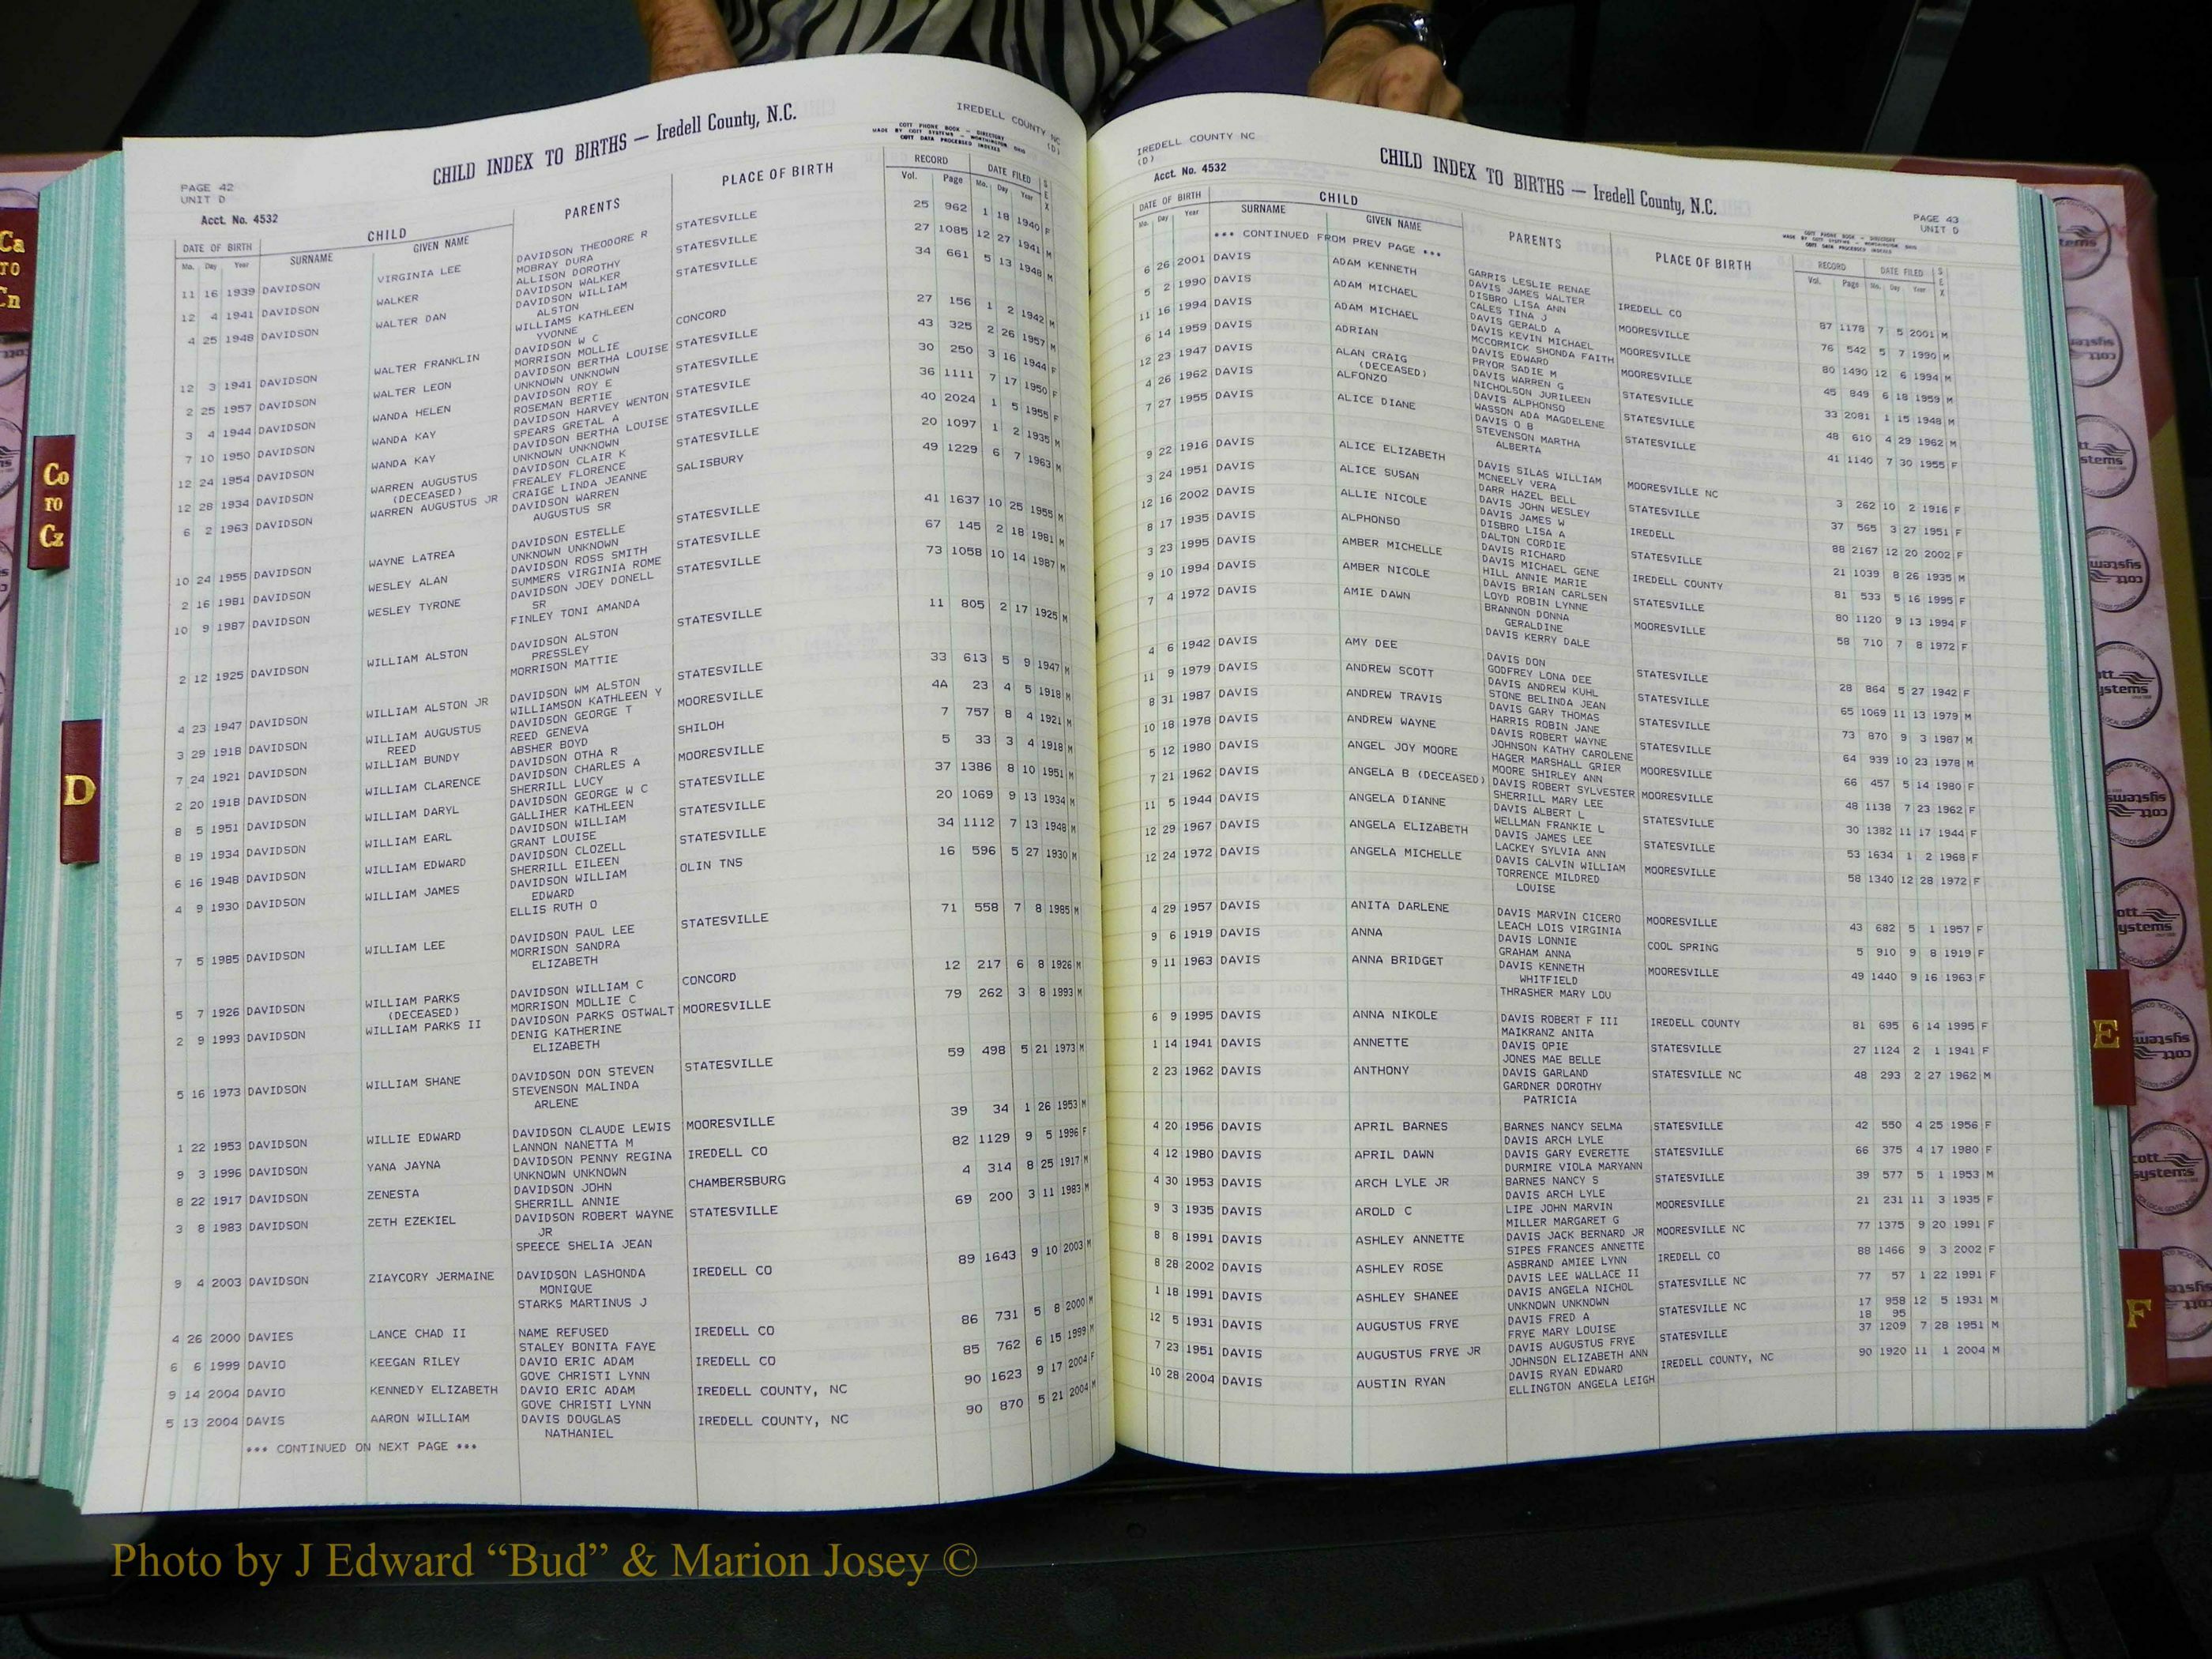 PAGE 42
UNIT D
CHILD INDEX TO BIRTHS — Iredell County, N.C.
IREDELL COUNTY NC
(D)
COTT PHONE BOOK — DIRECTORY
MADE BY COTT SYSTEMS — WORTHINGTON, OHIO
COTT DATA PROCESSED INDEXES
Acct. No. 4532
DATE OF BIRTH CHILD PARENTS PLACE OF BIRTH RECORD DATE FILED SEX
Mo. Day Year SURNAME GIVEN NAME Vol. Page Mo. Day Year
11 16 1939 DAVIDSON VIRGINIA LEE DAVIDSON THEODORE R STATESVILLE 25 962 1 18 1940 F
MOBRAY DURA
12 4 1941 DAVIDSON WALKER ALLISON DOROTHY STATESVILLE 27 1085 12 27 1941 M
DAVIDSON WALKER
4 25 1948 DAVIDSON WALTER DAN DAVIDSON WILLIAM STATESVILLE 34 661 5 13 1948 M
ALSTON
WILLIAMS KATHLEEN
YVONNE
12 3 1941 DAVIDSON WALTER FRANKLIN DAVIDSON W C CONCORD 27 156 1 2 1942 M
MORRISON MOLLIE
2 25 1957 DAVIDSON WALTER LEON DAVIDSON BERTHA LOUISE STATESVILLE 43 325 2 26 1957 M
UNKNOWN UNKNOWN
3 4 1944 DAVIDSON WANDA HELEN DAVIDSON ROY E STATESVILLE 30 250 3 16 1944 F
ROSEMAN BERTIE
7 10 1950 DAVIDSON WANDA KAY DAVIDSON HARVEY WENTON STATESVILE 36 1111 7 17 1950 F
SPEARS GRETAL A
12 24 1954 DAVIDSON WANDA KAY DAVIDSON BERTHA LOUISE STATESVILLE 40 2024 1 5 1955 F
UNKNOWN UNKNOWN
12 28 1934 DAVIDSON WARREN AUGUSTUS DAVIDSON CLAIR K STATESVILLE 20 1097 1 2 1935 M
(DECEASED) FREALEY FLORENCE
6 2 1963 DAVIDSON WARREN AUGUSTUS JR CRAIGE LINDA JEANNE SALISBURY 49 1229 6 7 1963 M
DAVIDSON WARREN
AUGUSTUS SR
10 24 1955 DAVIDSON WAYNE LATREA DAVIDSON ESTELLE STATESVILLE 41 1637 10 25 1955 M
UNKNOWN UNKNOWN
2 16 1981 DAVIDSON WESLEY ALAN DAVIDSON ROSS SMITH STATESVILLE 67 145 2 18 1981 M
SUMMERS VIRGINIA ROME
10 9 1987 DAVIDSON WESLEY TYRONE DAVIDSON JOEY DONELL STATESVILLE 73 1058 10 14 1987 M
SR
FINLEY TONI AMANDA
2 12 1925 DAVIDSON WILLIAM ALSTON DAVIDSON ALSTON STATESVILLE 11 805 2 17 1925 M
PRESSLEY
MORRISON MATTIE
4 23 1947 DAVIDSON WILLIAM ALSTON JR DAVIDSON WM ALSTON STATESVILLE 33 613 5 9 1947 M
WILLIAMSON KATHLEEN Y
3 29 1918 DAVIDSON WILLIAM AUGUSTUS DAVIDSON GEORGE T MOORESVILLE 4A 23 4 5 1918 M
REED REED GENEVA
7 24 1921 DAVIDSON WILLIAM BUNDY ABSHER BOYD SHILOH 7 757 8 4 1921 M
DAVIDSON OTHA R
2 20 1918 DAVIDSON WILLIAM CLARENCE DAVIDSON CHARLES A MOORESVILLE 5 33 3 4 1918 M
SHERRILL LUCY
8 5 1951 DAVIDSON WILLIAM DARYL DAVIDSON GEORGE W C STATESVILLE 37 1386 8 10 1951 M
GALLIHER KATHLEEN
8 19 1934 DAVIDSON WILLIAM EARL DAVIDSON WILLIAM STATESVILLE 20 1069 9 13 1934 M
GRANT LOUISE
6 16 1948 DAVIDSON WILLIAM EDWARD DAVIDSON CLOZELL STATESVILLE 34 1112 7 13 1948 M
SHERRILL EILEEN
4 9 1930 DAVIDSON WILLIAM JAMES DAVIDSON WILLIAM OLIN TNS 16 596 5 27 1930 M
EDWARD
ELLIS RUTH O
7 5 1985 DAVIDSON WILLIAM LEE DAVIDSON PAUL LEE STATESVILLE 71 558 7 8 1985 M
MORRISON SANDRA
ELIZABETH
5 7 1926 DAVIDSON WILLIAM PARKS DAVIDSON WILLIAM C CONCORD 12 217 6 8 1926 M
(DECEASED) MORRISON MOLLIE C
2 9 1993 DAVIDSON WILLIAM PARKS II DAVIDSON PARKS OSTWALT MOORESVILLE 79 262 3 8 1993 M
DENIG KATHERINE
ELIZABETH
5 16 1973 DAVIDSON WILLIAM SHANE DAVIDSON DON STEVEN STATESVILLE 59 498 5 21 1973 M
STEVENSON MALINDA
ARLENE
1 22 1953 DAVIDSON WILLIE EDWARD DAVIDSON CLAUDE LEWIS MOORESVILLE 39 34 1 26 1953 M
LANNON NANETTA M
9 3 1996 DAVIDSON YANA JAYNA DAVIDSON PENNY REGINA IREDELL CO 82 1129 9 5 1996 F
UNKNOWN UNKNOWN
8 22 1917 DAVIDSON ZENESTA DAVIDSON JOHN CHAMBERSBURG 4 314 8 25 1917 M
SHERRILL ANNIE
3 8 1983 DAVIDSON ZETH EZEKIEL DAVIDSON ROBERT WAYNE STATESVILLE 69 200 3 11 1983 M
JR
SPEECE SHELIA JEAN
9 4 2003 DAVIDSON ZIAYCORY JERMAINE DAVIDSON LASHONDA IREDELL CO 89 1643 9 10 2003 M
MONIQUE
STARKS MARTINUS J
4 26 2000 DAVIES LANCE CHAD II NAME REFUSED IREDELL CO 86 731 5 8 2000 M
STALEY BONITA FAYE
6 6 1999 DAVIO KEEGAN RILEY DAVIO ERIC ADAM IREDELL CO 85 762 6 15 1999 M
GOVE CHRISTI LYNN
9 14 2004 DAVIO KENNEDY ELIZABETH DAVIO ERIC ADAM IREDELL COUNTY, NC 90 1623 9 17 2004 F
GOVE CHRISTI LYNN
5 13 2004 DAVIS AARON WILLIAM DAVIS DOUGLAS IREDELL COUNTY, NC 90 870 5 21 2004 M
NATHANIEL
*** CONTINUED ON NEXT PAGE ***
IREDELL COUNTY NC
(D)
Acct. No. 4532
CHILD INDEX TO BIRTHS — Iredell County, N.C.
PAGE 43
UNIT D
COTT PHONE BOOK — DIRECTORY
MADE BY COTT SYSTEMS — WORTHINGTON, OHIO
COTT DATA PROCESSED INDEXES
DATE OF BIRTH CHILD PARENTS PLACE OF BIRTH RECORD DATE FILED SEX
Mo. Day Year SURNAME GIVEN NAME Vol. Page Mo. Day Year
*** CONTINUED FROM PREV PAGE ***
GARRIS LESLIE RENAE
6 26 2001 DAVIS ADAM KENNETH DAVIS JAMES WALTER IREDELL CO 87 1178 7 5 2001 M
DISBRO LISA ANN
5 2 1990 DAVIS ADAM MICHAEL CALES TINA J MOORESVILLE 76 542 5 7 1990 M
DAVIS GERALD A
11 16 1994 DAVIS ADAM MICHAEL DAVIS KEVIN MICHAEL MOORESVILLE 80 1490 12 6 1994 M
MCCORMICK SHONDA FAITH
6 14 1959 DAVIS ADRIAN DAVIS EDWARD MOORESVILLE 45 849 6 18 1959 M
PRYOR SADIE M
12 23 1947 DAVIS ALAN CRAIG DAVIS WARREN G STATESVILLE 33 2081 1 15 1948 M
(DECEASED) NICHOLSON JURILEEN
4 26 1962 DAVIS ALFONZO DAVIS ALPHONSO STATESVILLE 48 610 4 29 1962 M
WASSON ADA MAGDELENE
7 27 1955 DAVIS ALICE DIANE DAVIS O B STATESVILLE 41 1140 7 30 1955 F
STEVENSON MARTHA
ALBERTA
9 22 1916 DAVIS ALICE ELIZABETH DAVIS SILAS WILLIAM MOORESVILLE NC 3 262 10 2 1916 F
MCNEELY VERA
3 24 1951 DAVIS ALICE SUSAN DARR HAZEL BELL STATESVILLE 37 565 3 27 1951 F
DAVIS JOHN WESLEY
12 16 2002 DAVIS ALLIE NICOLE DAVIS JAMES W IREDELL 88 2167 12 20 2002 F
DISBRO LISA A
8 17 1935 DAVIS ALPHONSO DALTON CORDIE STATESVILLE 21 1039 8 26 1935 M
DAVIS RICHARD
3 23 1995 DAVIS AMBER MICHELLE DAVIS MICHAEL GENE IREDELL COUNTY 81 533 5 16 1995 F
HILL ANNIE MARIE
9 10 1994 DAVIS AMBER NICOLE DAVIS BRIAN CARLSEN STATESVILLE 80 1120 9 13 1994 F
LOYD ROBIN LYNNE
7 4 1972 DAVIS AMIE DAWN BRANNON DONNA MOORESVILLE 58 710 7 8 1972 F
GERALDINE
DAVIS KERRY DALE
4 6 1942 DAVIS AMY DEE DAVIS DON STATESVILLE 28 864 5 27 1942 F
GODFREY LONA DEE
11 9 1979 DAVIS ANDREW SCOTT DAVIS ANDREW KUHL STATESVILLE 65 1069 11 13 1979 M
STONE BELINDA JEAN
8 31 1987 DAVIS ANDREW TRAVIS DAVIS GARY THOMAS STATESVILLE 73 870 9 3 1987 M
HARRIS ROBIN JANE
10 18 1978 DAVIS ANDREW WAYNE DAVIS ROBERT WAYNE STATESVILLE 64 939 10 23 1978 M
JOHNSON KATHY CAROLENE
5 12 1980 DAVIS ANGEL JOY MOORE HAGER MARSHALL GRIER MOORESVILLE 66 457 5 14 1980 F
MOORE SHIRLEY ANN
7 21 1962 DAVIS ANGELA B (DECEASED) DAVIS ROBERT SYLVESTER MOORESVILLE 48 1138 7 23 1962 F
SHERRILL MARY LEE
11 5 1944 DAVIS ANGELA DIANNE DAVIS ALBERT L STATESVILLE 30 1382 11 17 1944 F
WELLMAN FRANKIE L
12 29 1967 DAVIS ANGELA ELIZABETH DAVIS JAMES LEE STATESVILLE 53 1634 1 2 1968 F
LACKEY SYLVIA ANN
12 24 1972 DAVIS ANGELA MICHELLE DAVIS CALVIN WILLIAM MOORESVILLE 58 1340 12 28 1972 F
TORRENCE MILDRED
LOUISE
4 29 1957 DAVIS ANITA DARLENE DAVIS MARVIN CICERO MOORESVILLE 43 682 5 1 1957 F
LEACH LOIS VIRGINIA
9 6 1919 DAVIS ANNA DAVIS LONNIE COOL SPRING 5 910 9 8 1919 F
GRAHAM ANNA
9 11 1963 DAVIS ANNA BRIDGET DAVIS KENNETH MOORESVILLE 49 1440 9 16 1963 F
WHITFIELD
THRASHER MARY LOU
6 9 1995 DAVIS ANNA NIKOLE DAVIS ROBERT F III IREDELL COUNTY 81 695 6 14 1995 F
MAIKRANZ ANITA
1 14 1941 DAVIS ANNETTE DAVIS OPIE STATESVILLE 27 1124 2 1 1941 F
JONES MAE BELLE
2 23 1962 DAVIS ANTHONY DAVIS GARLAND STATESVILLE NC 48 293 2 27 1962 M
GARDNER DOROTHY
PATRICIA
4 20 1956 DAVIS APRIL BARNES BARNES NANCY SELMA STATESVILLE 42 550 4 25 1956 F
DAVIS ARCH LYLE
4 12 1980 DAVIS APRIL DAWN DAVIS GARY EVERETTE STATESVILLE 66 375 4 17 1980 F
DURMIRE VIOLA MARYANN
4 30 1953 DAVIS ARCH LYLE JR BARNES NANCY S STATESVILLE 39 577 5 1 1953 M
DAVIS ARCH LYLE
9 3 1935 DAVIS AROLD C LIPE JOHN MARVIN MOORESVILLE 21 231 11 3 1935 F
MILLER MARGARET G
8 8 1991 DAVIS ASHLEY ANNETTE DAVIS JACK BERNARD JR MOORESVILLE NC 77 1375 9 20 1991 F
SIPES FRANCES ANNETTE
8 28 2002 DAVIS ASHLEY ROSE ASBRAND AMIEE LYNN IREDELL CO 88 1466 9 3 2002 F
DAVIS LEE WALLACE II
1 18 1991 DAVIS ASHLEY SHANEE DAVIS ANGELA NICHOL STATESVILLE NC 77 57 1 22 1991 F
UNKNOWN UNKNOWN
12 5 1931 DAVIS AUGUSTUS FRYE DAVIS FRED A STATESVILLE NC 17 958 12 5 1931 M
FRYE MARY LOUISE 18 95
7 23 1951 DAVIS AUGUSTUS FRYE JR DAVIS AUGUSTUS FRYE STATESVILLE 37 1209 7 28 1951 M
JOHNSON ELIZABETH ANN
10 28 2004 DAVIS AUSTIN RYAN DAVIS RYAN EDWARD IREDELL COUNTY, NC 90 1920 11 1 2004 M
ELLINGTON ANGELA LEIGH
Ca
TO
Cn
Co
TO
Cz
D
E
F
cott
systems
Photo by J Edward “Bud” & Marion Josey ©